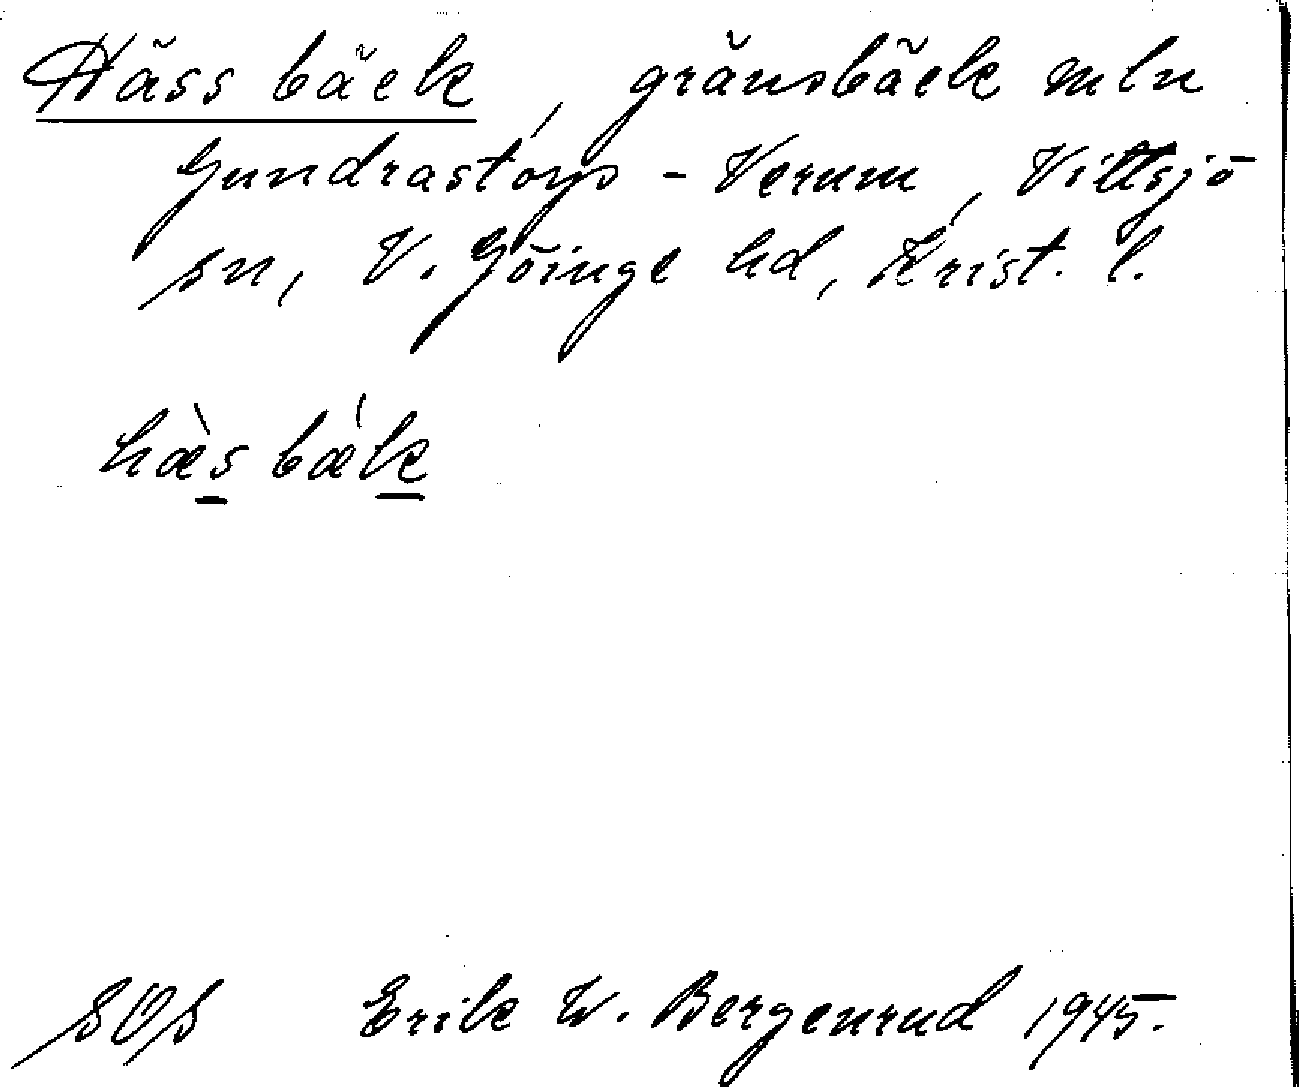 Häss bäck, gränsbäck mln
Gundrastorp - Verum, Vittsjö
sn, V. Göinge hd, Krist. l.
hæ̀s bǽk
SOS Erik W. Bergenrud 1945.